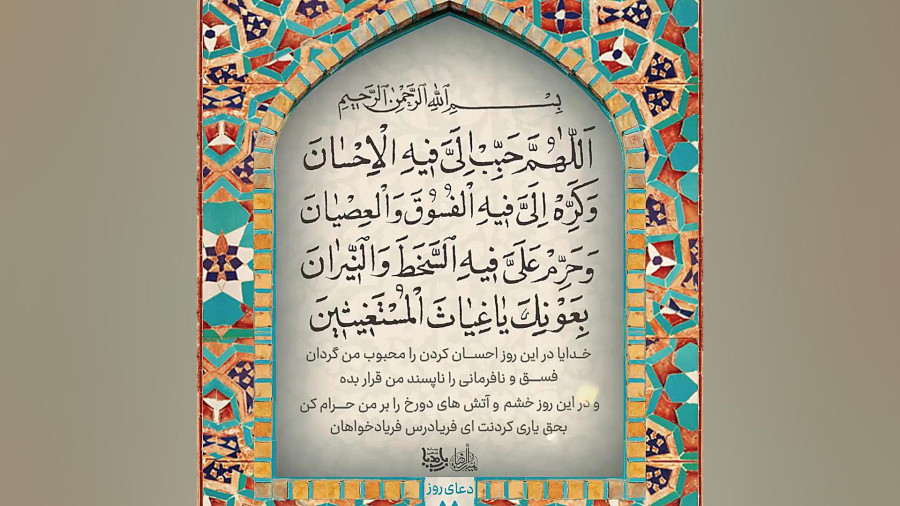 بِسْمِ اللهِ الرَّحْمٰنِ الرَّحِیمِ
اَللّٰهُمَّ حَبِّبْ اِلَیَّ فیهِ الْاِحْسٰانَ
وَ کَرِّهْ اِلَیَّ فیهِ الْفُسُوْقَ وَ الْعِصْیٰانَ
وَ حَرِّمْ عَلَیَّ فیهِ السَّخَطَ وَ النّیٖرٰانَ
بِعَوْنِکَ یٰا غِیٰاثَ الْمُسْتَغیٖثیٖنَ
خدایا در این روز احسان کردن را محبوب من گردان
فسق و نافرمانی را ناپسند من قرار بده
و در این روز خشم و آتش های دورخ را بر من حرام کن
بحق یاری کردنت ای فریادرس فریادخواهان
دعای روز